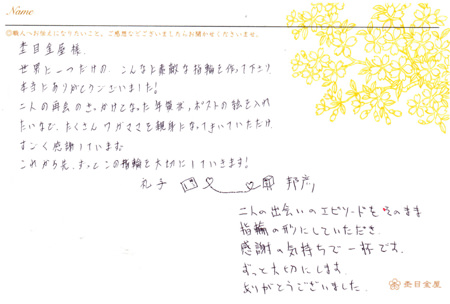 Name
◎職人へお伝えになりたいこと、ご感想などございましたらお聞かせくださいませ。
杢目金屋様
世界に一つだけの、こんなに素敵な指輪を作って下さり
本当にありがとうございました!
二人の再会のきっかけとなった年賀状、ポストの絵を入れ
たいなど、たくさんワガママを親身になってきいていただけ、
すごく感謝しています。
これから先、ずっとこの指輪を大切にしていきます!
丸子 邦彦
二人の出会いのエピソードをそのまま
指輪の形にしていただき、
感謝の気持ちで一杯です。
ずっと大切にします。
ありがとうございました。
杢目金屋